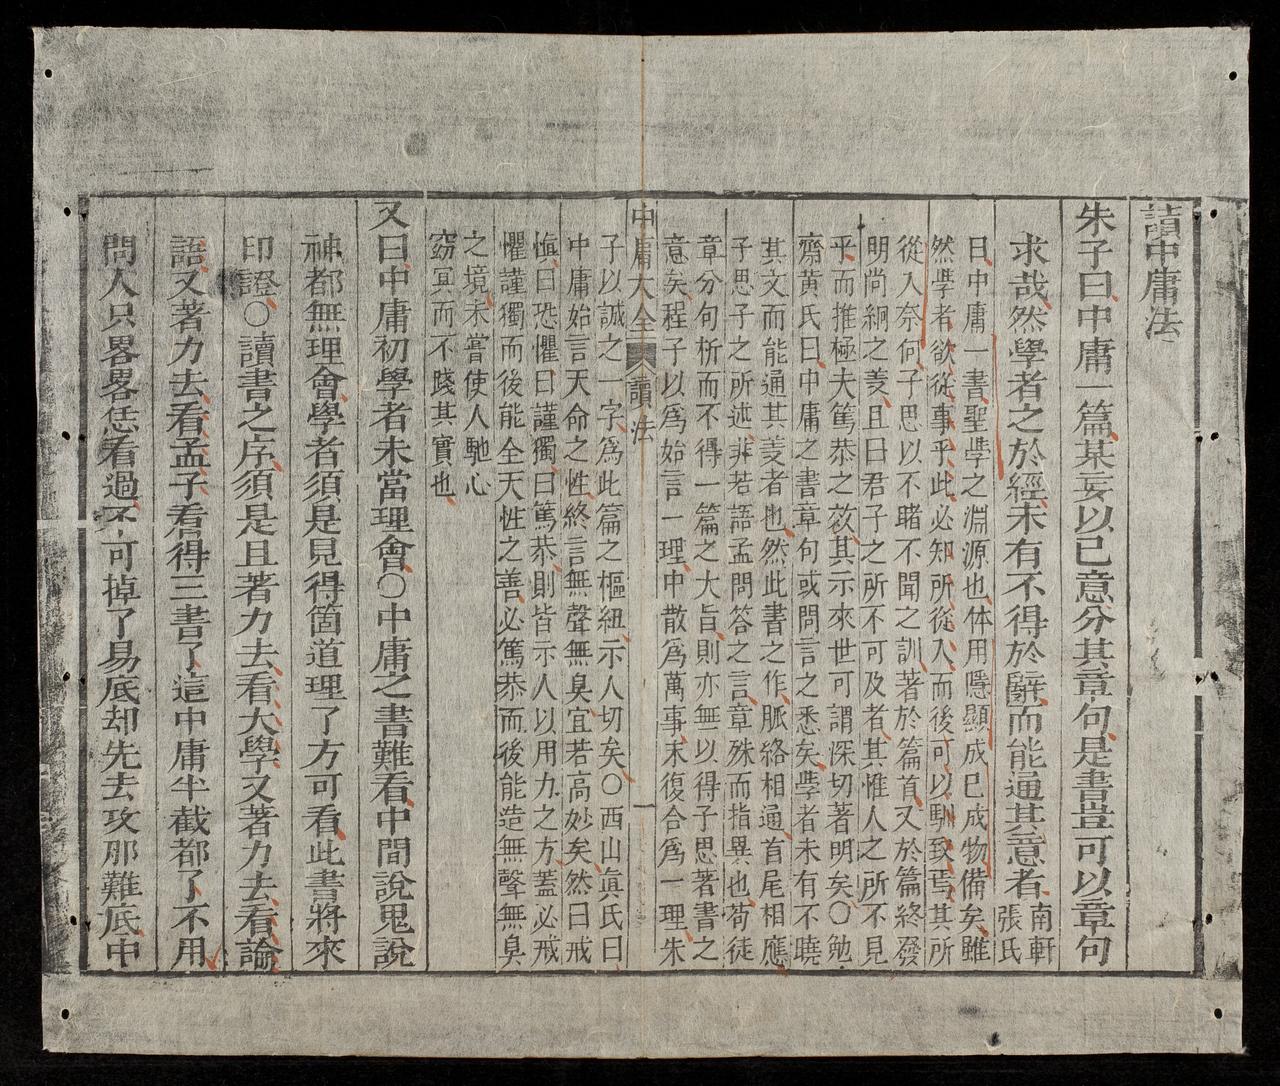 讀中庸法
朱子曰中庸一篇某妄以己意分其章句是書豈可以章句
求哉然學者之於經未有不得於辭而能通其意者南軒張氏
曰中庸一書聖學之淵源也体用隱顯成己成物備矣雖
然學者欲從事乎此必知所從入而後可以馴致焉其所
從入奈何子思以不睹不聞之訓著於篇首又於篇終發
明尚絅之義且曰君子之所不可及者其惟人之所不見
乎而推極夫篤恭之效其示來世可謂深切著明矣○勉
齋黃氏曰中庸之書章句或問言之悉矣學者未有不曉
其文而能通其義者也然此書之作脈絡相通首尾相應
子思子之所述非若語孟問答之言章殊而指異也苟徒
章分句析而不得一篇之大旨則亦無以得子思著書之
意矣程子以爲始言一理中散爲萬事末復合爲一理朱
中庸大全 讀法 一
子以誠之一字爲此篇之樞紐示人切矣○西山眞氏曰
中庸始言天命之性終言無聲無臭宜若高妙矣然曰戒
愼曰恐懼曰謹獨曰篤恭則皆示人以用力之方蓋必戒
懼謹獨而後能全天性之善必篤恭而後能造無聲無臭
之境未嘗使人馳心
窈冥而不踐其實也
又曰中庸初學者未當理會○中庸之書難看中間說鬼說
神都無理會學者須是見得箇道理了方可看此書將來
印證○讀書之序須是且著力去看大學又著力去看論
語又著力去看孟子看得三書了這中庸半截都了不用
問人只畧畧恁看過不可掉了易底却先去攻那難底中